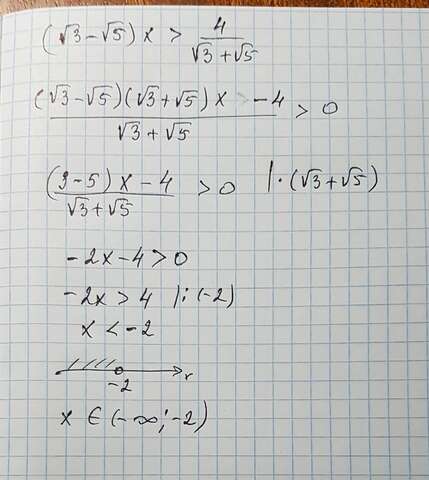 (√3 − √5) x > 4/(√3 + √5)
((√3 − √5)(√3 + √5) x − 4)/(√3 + √5) > 0
((3 − 5) x − 4)/(√3 + √5) > 0 | · (√3 + √5)
−2x − 4 > 0
−2x > 4 | : (−2)
x < −2
−2 x
x ∈ (−∞; −2)